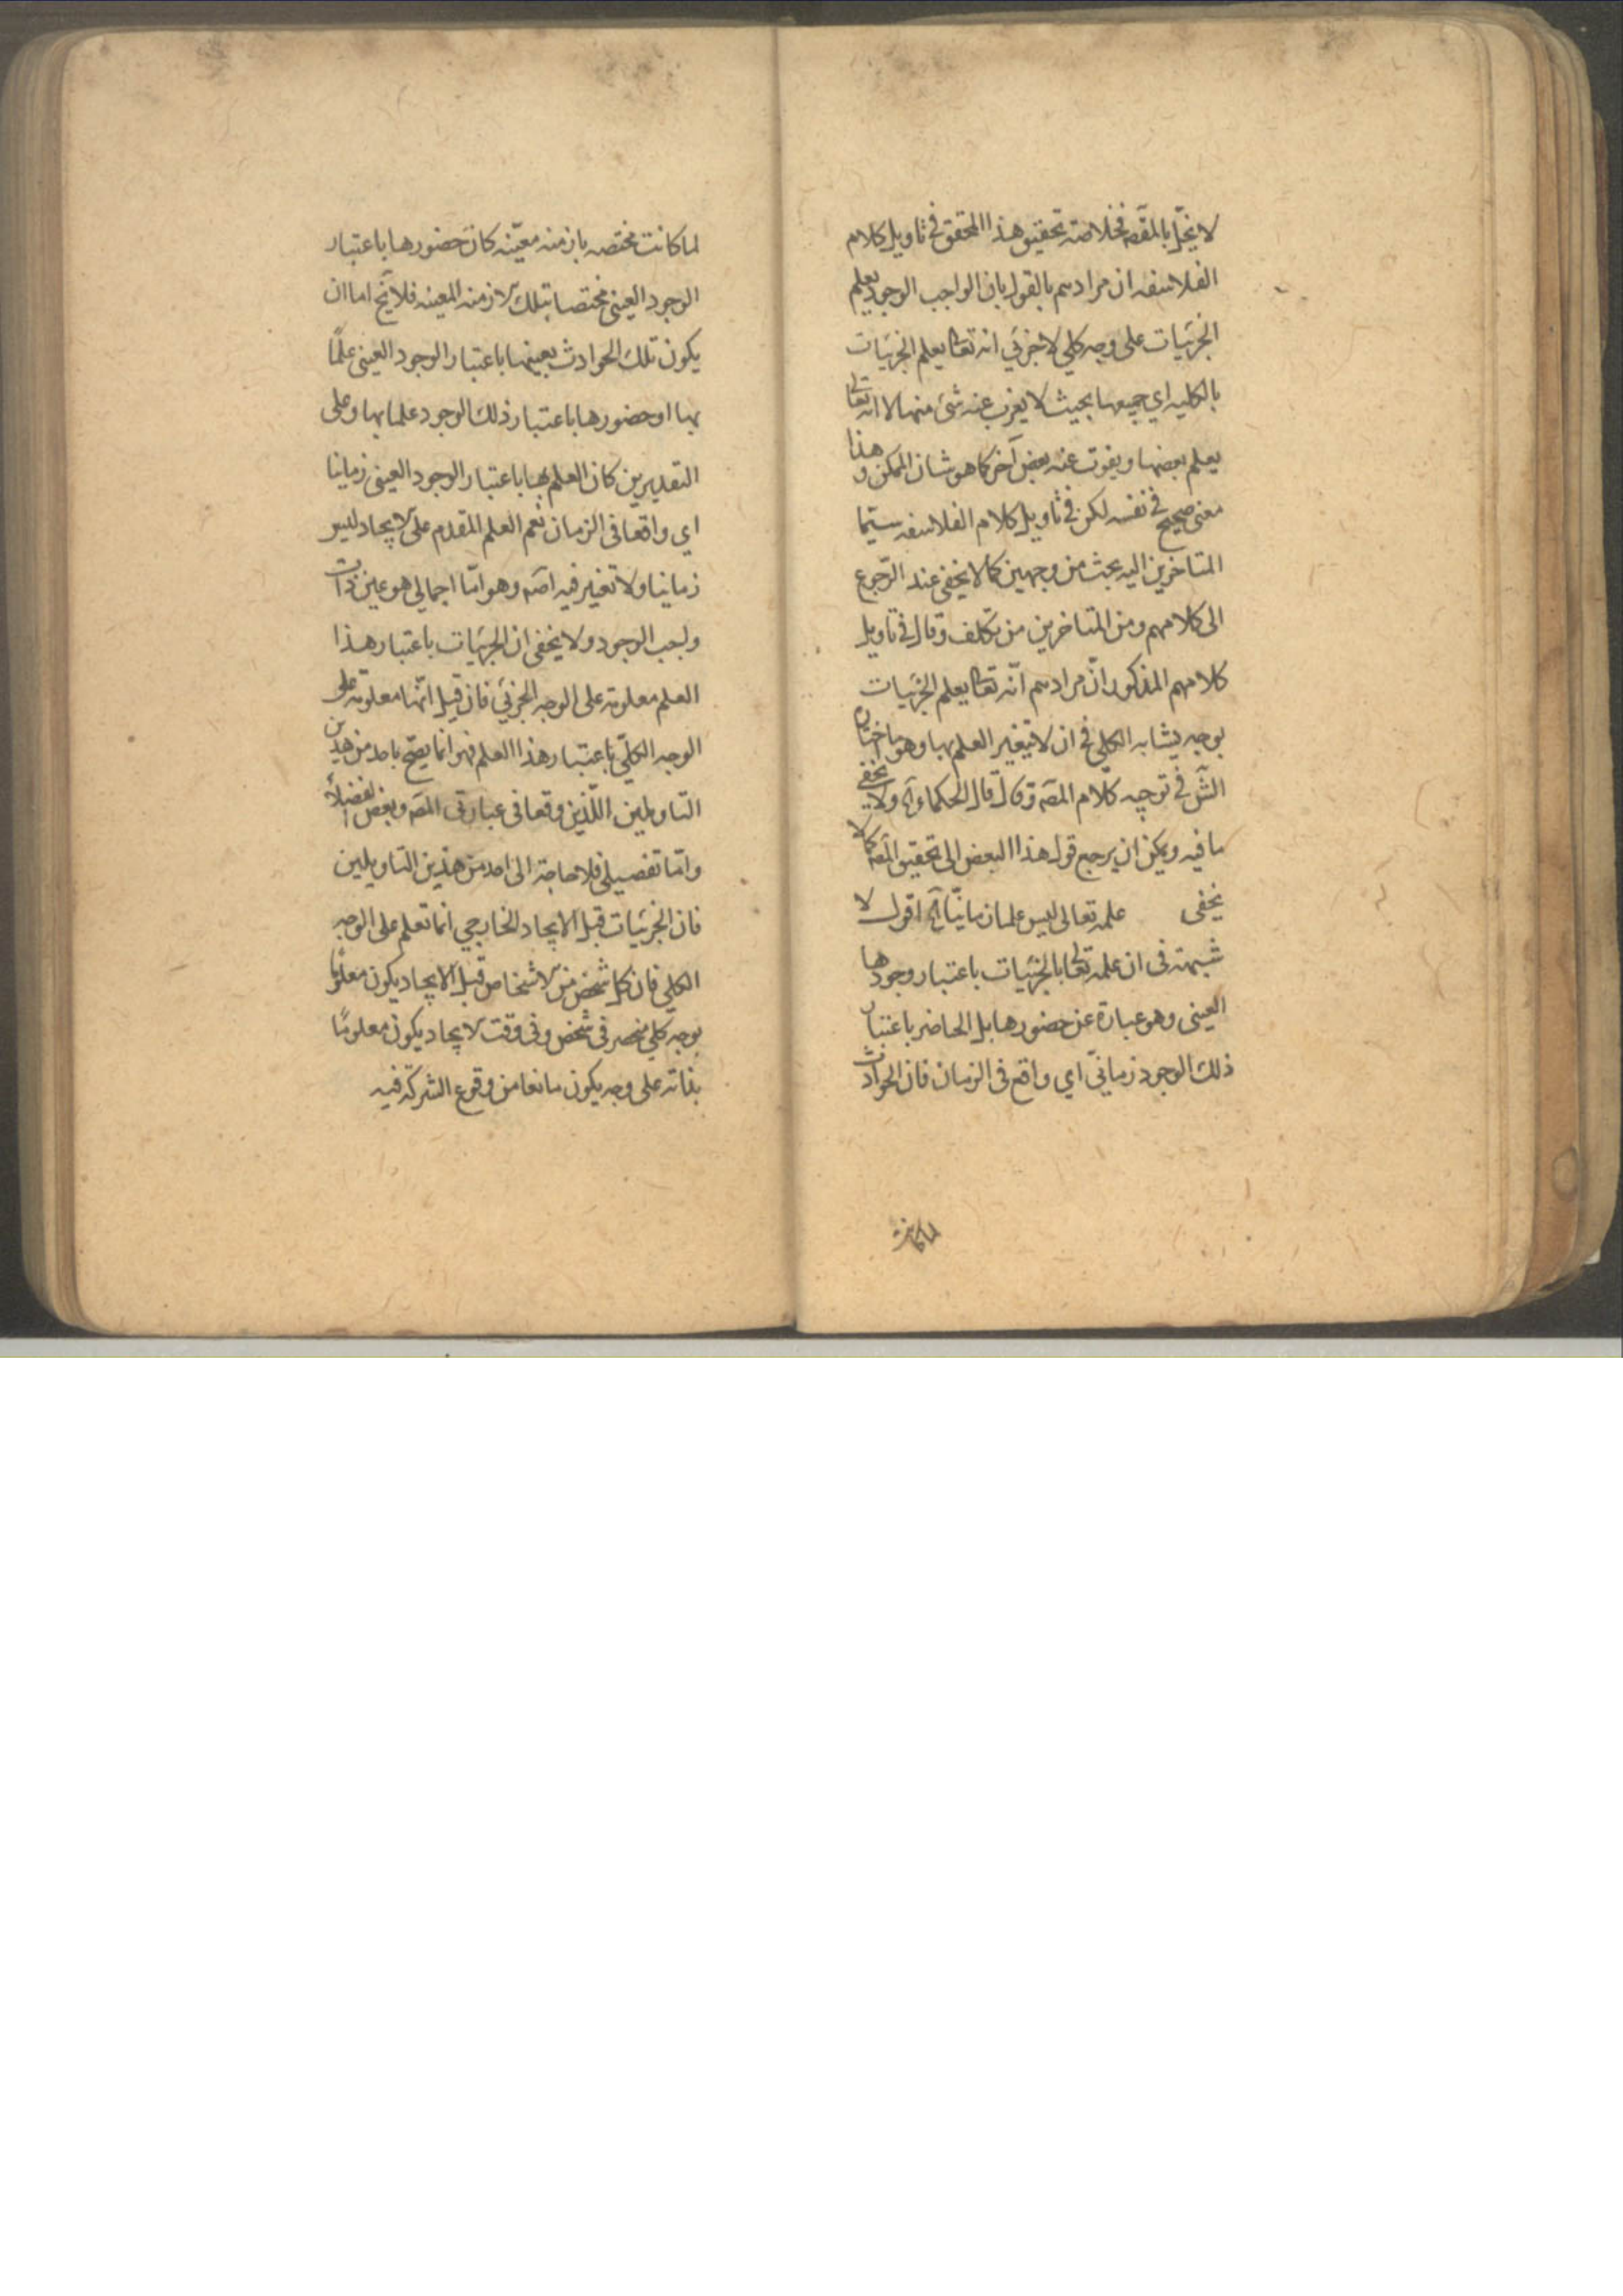 لا يخل بالمقصّ فخلاصة تحقيق هذا المحقق في تاويل كلام
الفلاسفه ان مرادهم بالقول بان الواجب الوجود يعلم
الجزئيات على وجه كلي لا جزئي انه تعا يعلم الجزئيات
بالكليه اي جميعها بحيث لا يعزب عنه شئ منها لا انه تعالى
يعلم بعضها ويفوت عنه بعض آخر كما هو شان الممكن وهذا
معنى صحيح في نفسه لكن في تاويل كلام الفلاسفه سيّما
المتاخرين اليه بحث من وجهين كما لا يخفى عند الرّجوع
الى كلامهم ومن المتاخرين من تكلف وقال في تاويل
كلامهم المذكور انّ مرادهم انّه تعا يعلم الجزئيات
بوجه يشابه الكلي في ان لا يتغير العلم بها وهو ما اختار
الشّ في توجيه كلام المصّ وقال قال الحكماء آه ولا يخفى
ما فيه ويمكن ان يرجع قول هذا البعض الى تحقيق المصّ كما لا
يخفى علمه تعالى ليس علما زمانيّا آه اقول لا
شبهة في ان علمه تعالى بالجزئيات باعتبار وجودها
العيني وهو عبارة عن حضورها بل الحاضر باعتبار
ذلك الوجود زمانيّ اي واقع في الزمان فان الحوادث
لما كانت
لما كانت مختصه بازمنه معيّنه كان حضورها باعتبار
الوجود العيني مختصا بتلك الازمنه المعينه فلا يخ اما ان
يكون تلك الحوادث بعينها باعتبار الوجود العيني علمًا
بها او حضورها باعتبار ذلك الوجود علما بها وعلى
التقديرين كان العلم بها باعتبار الوجود العيني زمانيا
اي واقعا في الزمان نعم العلم المقدم على الايجاد ليس
زمانيا ولا تغير فيه اصّه وهو امّا اجمالي هو عين ذات
واجب الوجود ولا يخفى ان الجزئيات باعتبار هذا
العلم معلومة على الوجه الجزئي فان قيل انّها معلومة على
الوجه الكلّي باعتبار هذا العلم فهو انما يصّح باحد من هذين
التاويلين اللّذين وقعا في عبارتي المصّ وبعض الفضلاء
وامّا تفصيلي فلا حاجة الى احد من هذين التاويلين
فان الجزئيات قبل الايجاد الخارجي انما تعلم على الوجه
الكلي فان كل شخص من الاشخاص قبل الايجاد يكون معلومًا
بوجه كلي منحصر في شخص وفي وقت الايجاد يكون معلومًا
بذاته على وجه يكون مانعا من وقوع الشركة فيه